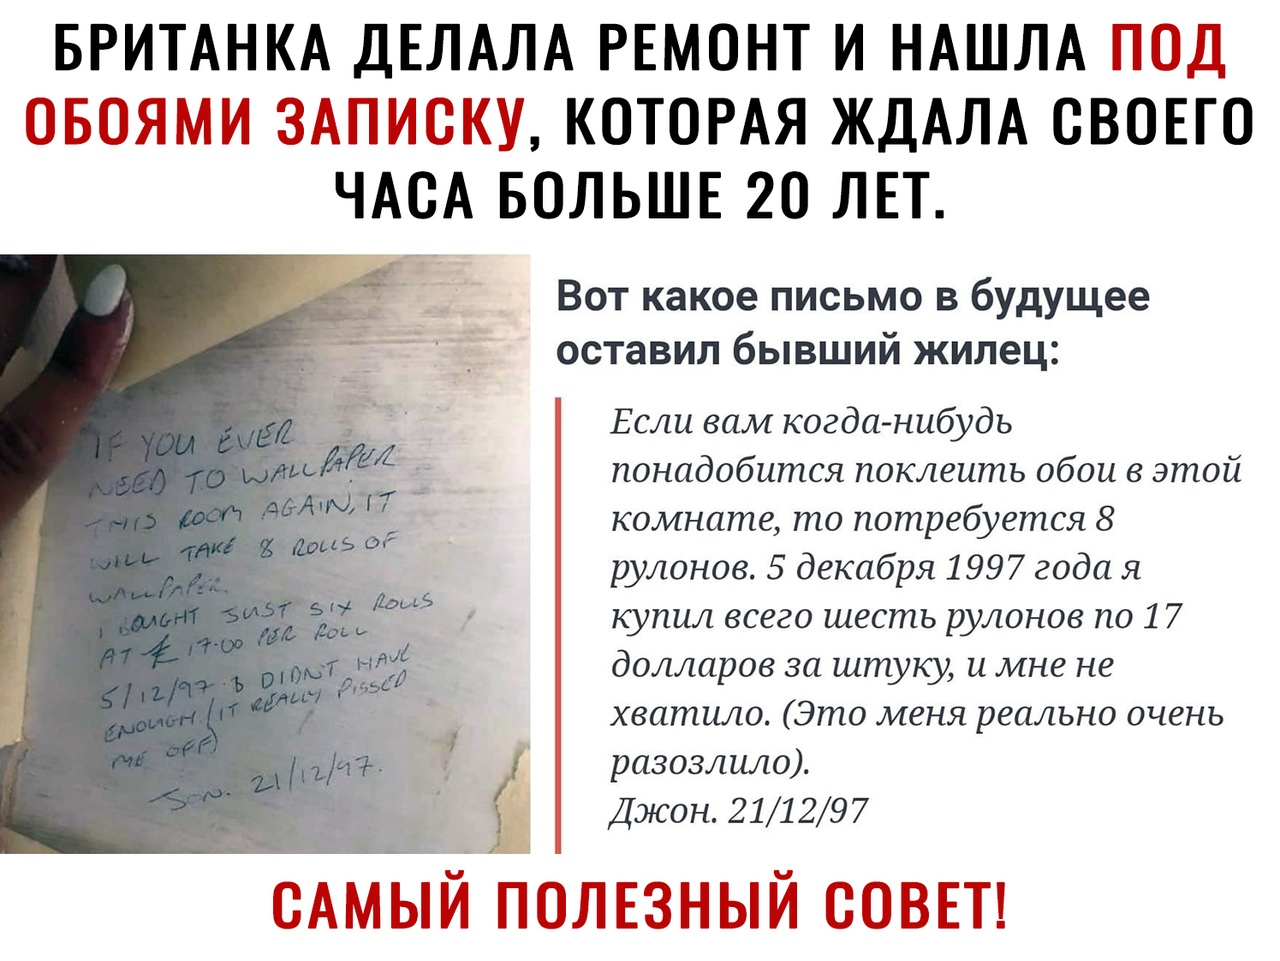 БРИТАНКА ДЕЛАЛА РЕМОНТ И НАШЛА ПОД
ОБОЯМИ ЗАПИСКУ, КОТОРАЯ ЖДАЛА СВОЕГО
ЧАСА БОЛЬШЕ 20 ЛЕТ.
IF YOU EVER
NEED TO WALLPAPER
THIS ROOM AGAIN, IT
WILL TAKE 8 ROLLS OF
WALLPAPER.
I BOUGHT JUST SIX ROLLS
AT £17.00 PER ROLL
5/12/97 & DIDN'T HAVE
ENOUGH (IT REALLY PISSED
ME OFF)
JON. 21/12/97.
Вот какое письмо в будущее
оставил бывший жилец:
Если вам когда-нибудь
понадобится поклеить обои в этой
комнате, то потребуется 8
рулонов. 5 декабря 1997 года я
купил всего шесть рулонов по 17
долларов за штуку, и мне не
хватило. (Это меня реально очень
разозлило).
Джон. 21/12/97
САМЫЙ ПОЛЕЗНЫЙ СОВЕТ!